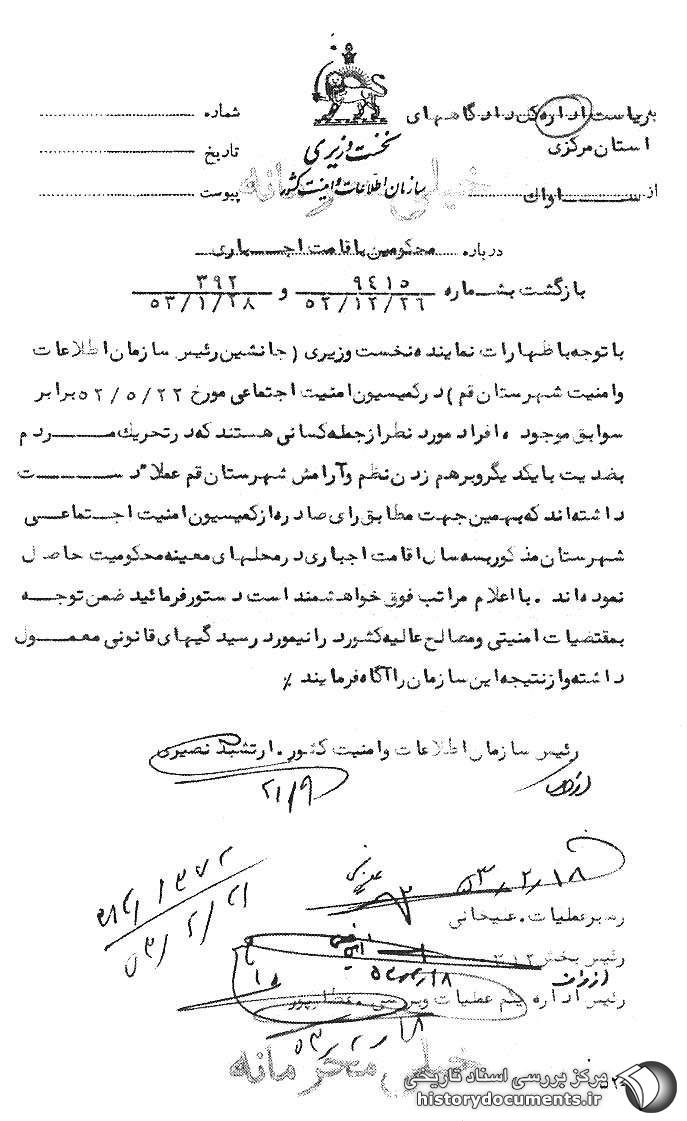 به ریاست اداره کل دادگاههای
استان مرکزی
از ســـاواک
نخست وزیری
سازمان اطلاعات و امنیت کشور
شماره
تاریخ
پیوست
خیلی محرمانه
درباره محکومین باقامت اجباری
بازگشت بشماره ۹٤۱۵ / ۵۲/۱۲/۲٦ و ۳۹۲ / ۵۳/۱/۲۸
با توجه باظهارات نماینده نخست وزیری (جانشین رئیس سازمان اطلاعات
وامنیت شهرستان قم) در کمیسیون امنیت اجتماعی مورخ ۵۲/۵/۲۲ برابر
سوابق موجوده افراد مورد نظر از جمله کسانی هستند که در تحریک مـــردم
بضدیت با یکدیگر و برهم زدن نظم و آرامش شهرستان قم عملا" دســـت
داشته اند که بهمین جهت مطابق رای صادره از کمیسیون امنیت اجتماعی
شهرستان مذکور بسه سال اقامت اجباری در محلهای معینه محکومیت حاصل
نموده اند . با اعلام مراتب فوق خواهشمند است دستور فرمائید ضمن توجه
بمقتضیات امنیتی و مصالح عالیه کشور در این مورد رسیدگیهای قانونی معمول
داشته و از نتیجه این سازمان را آگاه فرمایند ٪
رئیس سازمان اطلاعات و امنیت کشور . ارتشبد نصیری
۲۱/۹
۵۳/۲/۱۸
۵۳/۲/۲۱
رهبر عملیات . علیخانی
رئیس بخش ۳۱۲
رئیس اداره یکم عملیات و بررسی
خیلی محرمانه
مرکز بررسی اسناد تاریخی
historydocuments.ir